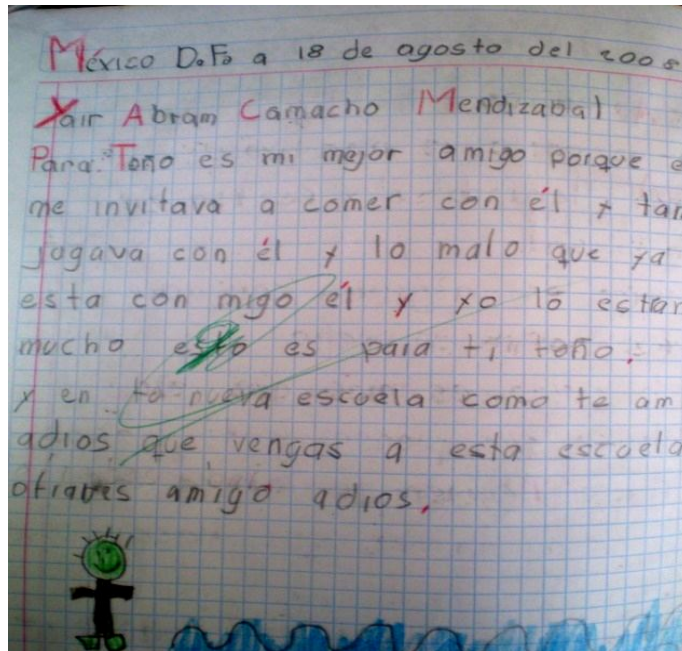 México D.F. a 18 de agosto del 2008
Yair Abram Camacho Mendizabal
Para: Toño es mi mejor amigo porque e
me invitava a comer con él y tam
jugava con él y lo malo que ya
esta con migo él y yo lo estrañ
mucho esto es para ti toño.
y en tu nueva escuela como te am
adios que vengas a esta escuela
otraves amigo adios.